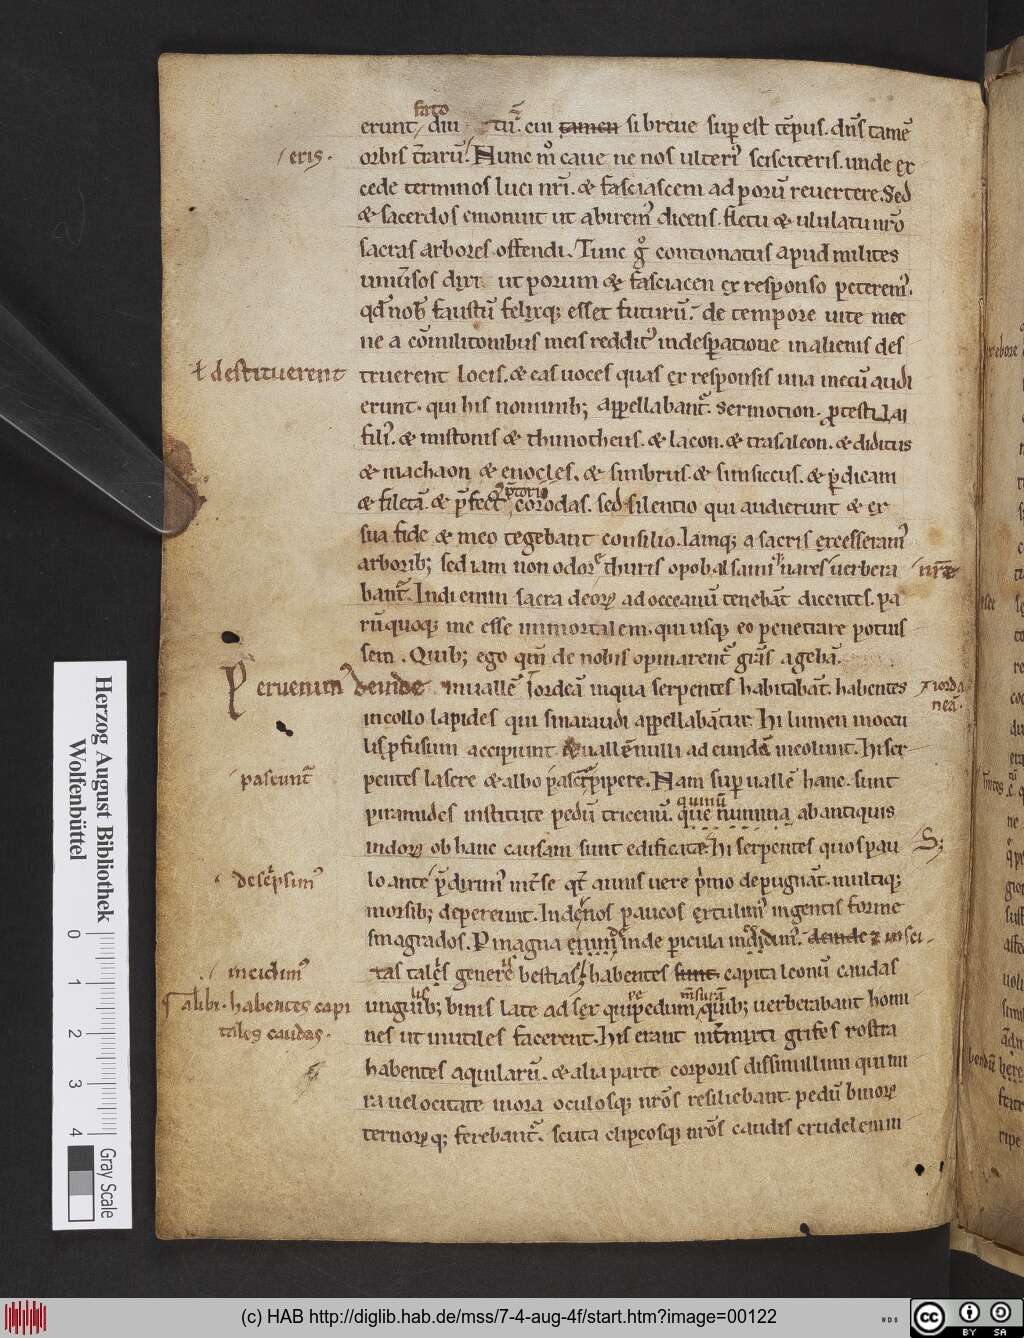 fato
erunt, diu tū. cui tamen si breue sup est tēpus. dn̄s tamē
eris.
orbis t̄rarū. Nunc m̊ caue ne nos ulteri᾿ scisciteris. unde ex
cede terminos luci nr̄i. & fasciascem ad porū reuertere. Sed
& sacerdos emonuit ut abirem᾿ dicens. fletu & ululatu nr̄o
sacras arbores offendi. Tunc g̊ contionatus apud milites
uniūsos dixi ut porum & fasciacen ex responso peterem᾿.
qd̄ nob̄ faustū felixq; esset futurū. de tempore uite mee
ne a cōmilitonibus meis reddit᾿ indesperatione in alienis des
ł destituerent
truerent locis. & eas uoces quas ex responsis una mecū audi
erunt. qui his nominib; appellabant᾿. Sermocion. ptesti lai
fili᾿. & mistonis & thimotheus. & lacon. & trasaleon. & diditus
& machaon & enocles. & simbrus. & simsiccus. & pdicam
p̄torio
& filetā. & p̄fect᾿, corodas. sed silentio qui audierunt & ex
sua fide & meo tegebant consilio. Iamq; a sacris excesseram᾿
arborib; sed iam non odor᾿ thuris opobalsami nares uerbera
nr̄æ
bant᾿. Indi enim sacra deoꝝ ad occeanū tenebāt dicentes. pa
rū quoq; me esse inmortalem. qui usq; eo penetrare potuis
sem. Quib; ego qm̄ de nobis opinarent᾿ grās agebā.
Peruenim᾿ deinde in uallē iordeā in qua serpentes habitabāt. habentes
iorda
neā.
in collo lapides qui smaraudi appellabātur. Hi lumen in occu
lis pfusum accipiunt & uallē nulli ad eundā incolunt. Hi ser
pascunt᾿
pentes lasere & albo pascr̄ pipere. Nam sup uallē hanc. sunt
quinū
piramides institute pedū tricenū. que numina ab antiquis
indoꝝ ob hanc causam sunt edificate. hi serpentes quos pau
S;
descr̄psim᾿
lo ante p̄dixim᾿ int̄ se qt̄ annis uere p̄mo depugnāt. multiq;
morsib; depereunt. Inde nos paucos extulim᾿ ingentis forme
smagrados. P magna enim inde pericula incidim᾿. deinde & in sci
incidim᾿
tas tales genere bestias; habentes sunt capita leonū caudas
alibi. habentes capi
tales caudas.
unguib; binis late ad sex quipedum, quib; uerberabant homi
pe msurā
nes ut inutiles facerent. His erant int̄mixti grifes rostra
habentes aquilarū. & alia parte corporis dissimillimi qui mi
ra uelocitate in ora oculosq; nr̄os resiliebant. pedū binoꝝ
ternoꝝq; ferebant᾿. scuta clipeosq; nr̄os caudis crudelem in
Herzog August Bibliothek
Wolfenbüttel
0 1 2 3 4
Gray Scale
(c) HAB http://diglib.hab.de/mss/7-4-aug-4f/start.htm?image=00122
WDB
cc BY SA